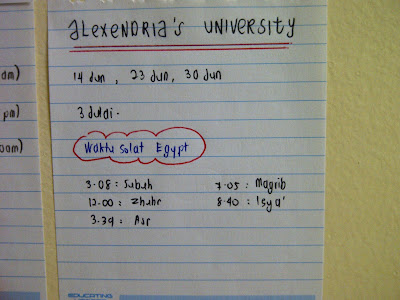 alexendria's university
14 Jun, 23 Jun, 30 Jun
3 Julai.
Waktu Solat Egypt
3.08 : Subuh
12.00 : Zhuhr
3.39 : Asr
7.05 : Magrib
8.40 : 'Sya'
am)
pm)
oam)
EDUCATING